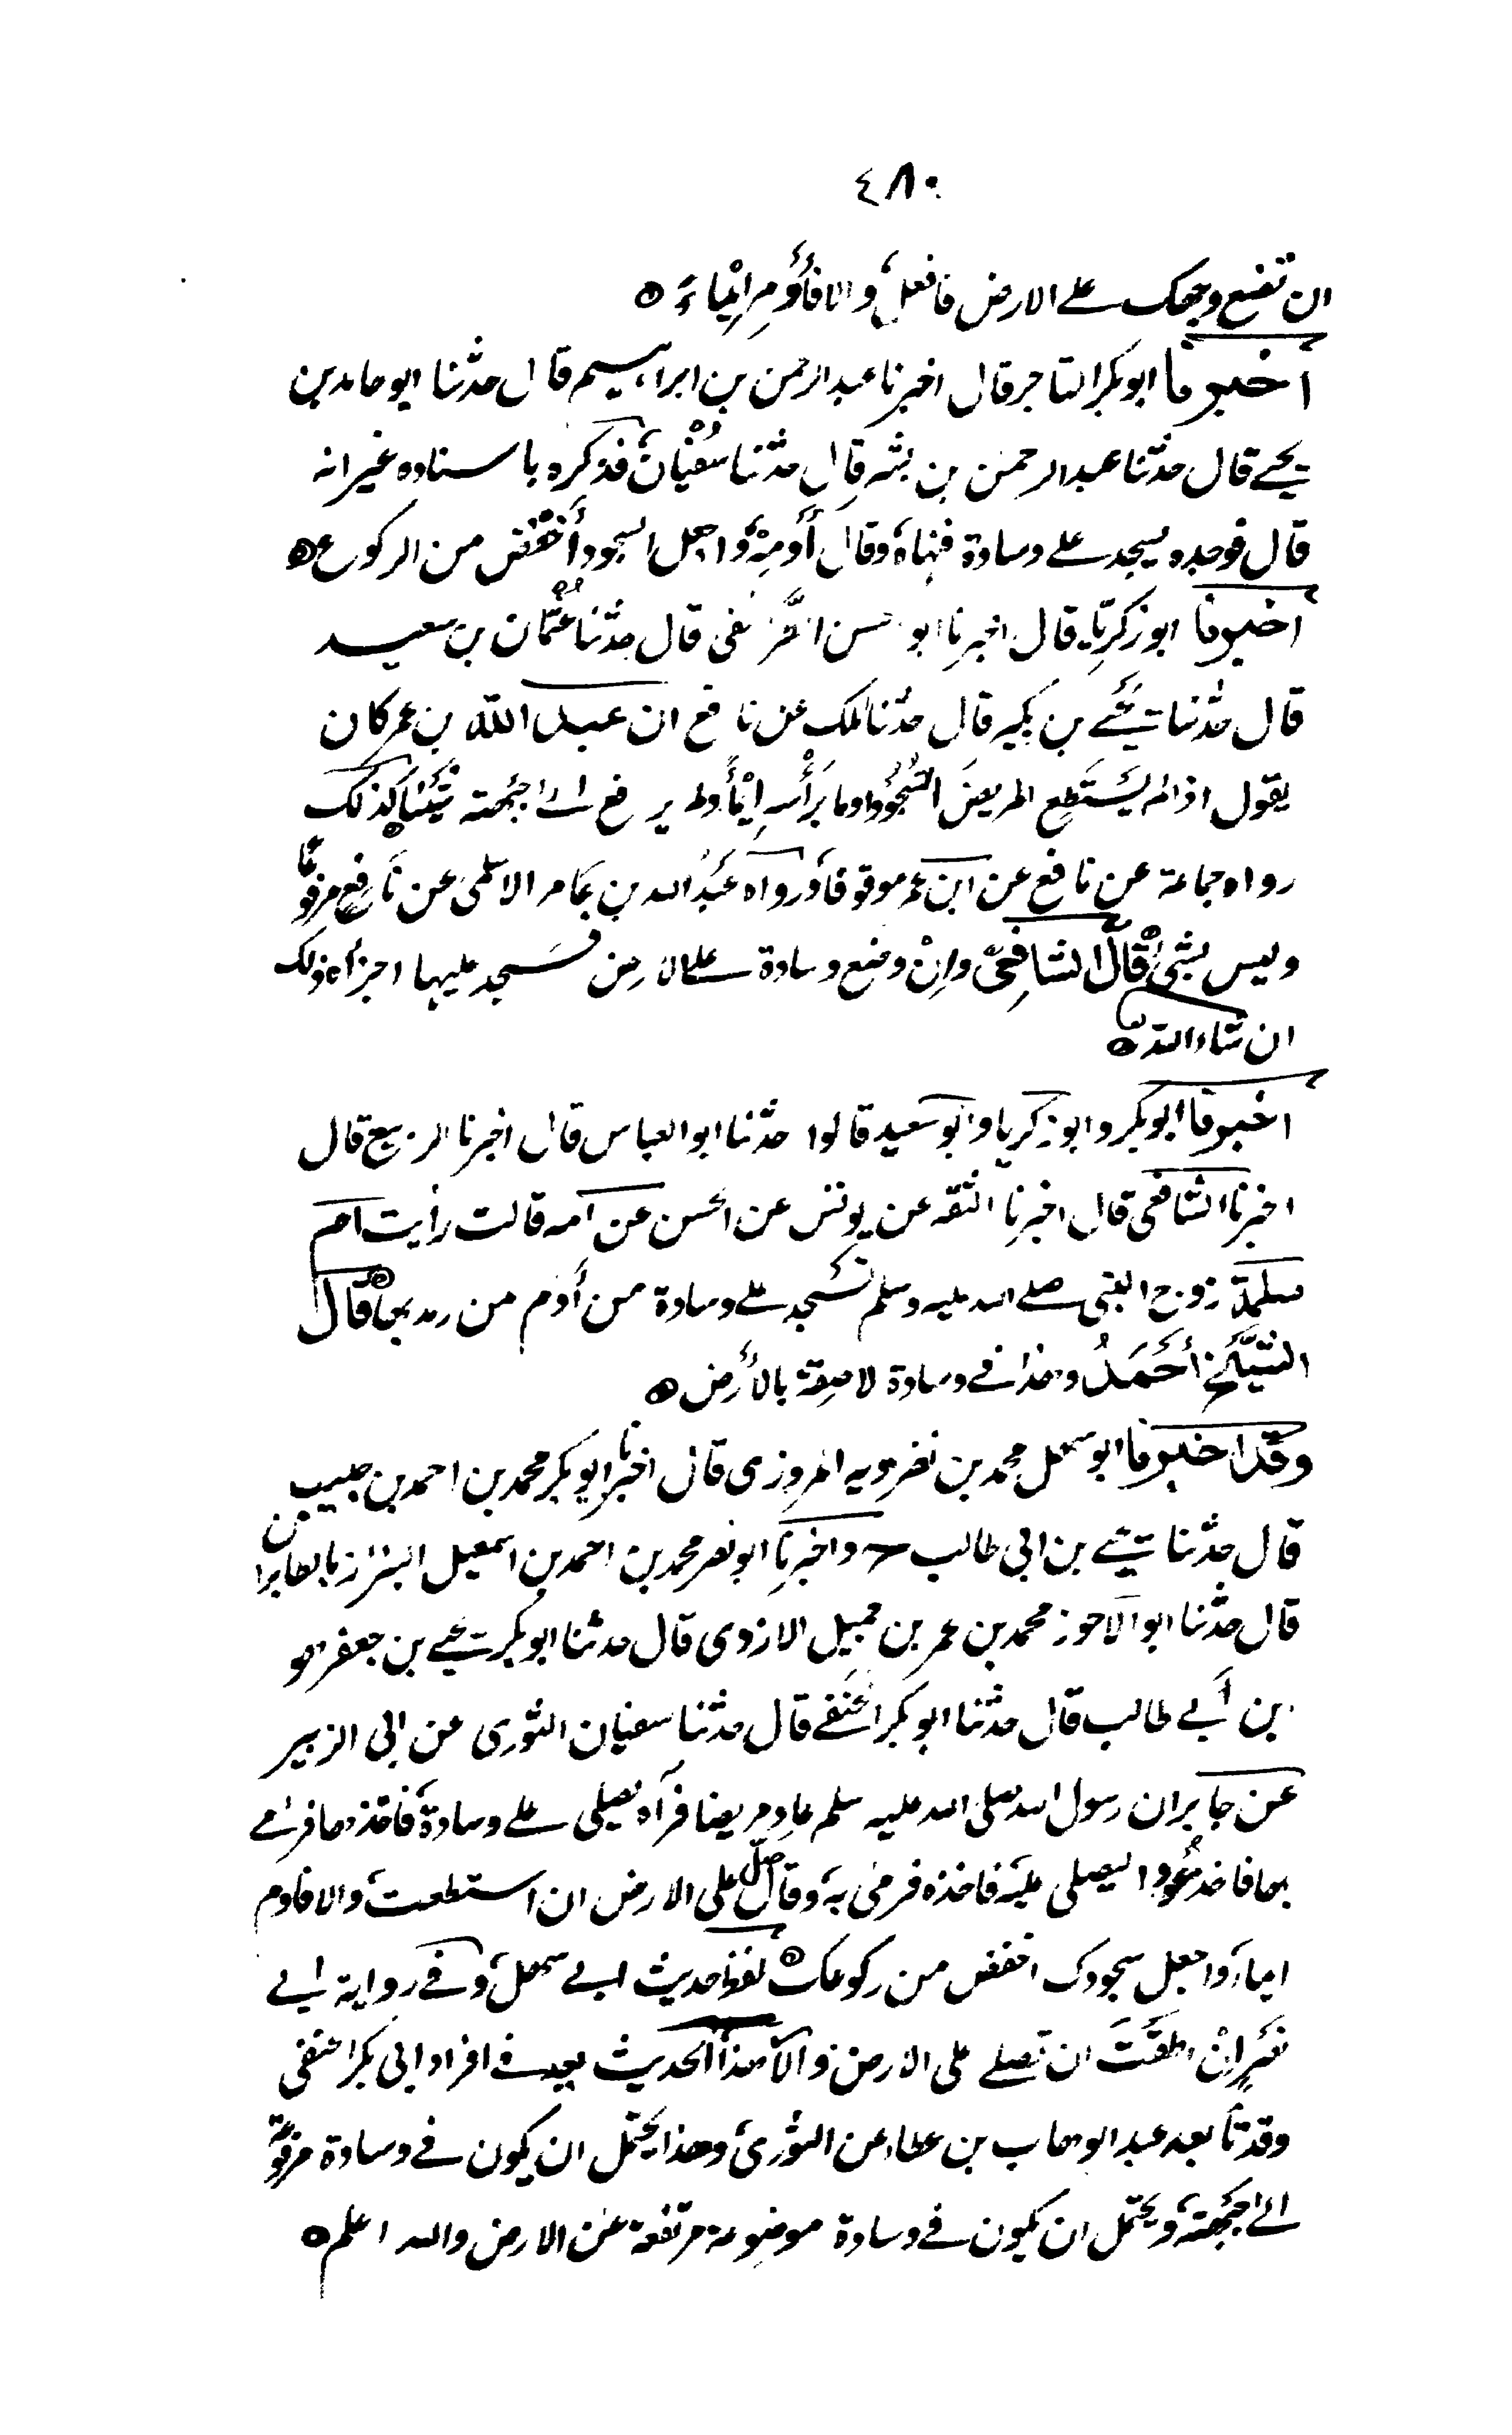 ٤٨٠
ان تضع وجهك على الارض فافعل والا فَأَوْمِ اِيْمَاءً ۞
اخبرنا ابو بكر التاجر قال اخبرنا عبد الرحمن بن ابراهيم قال حدثنا ابو حامد بن
يحيى قال حدثنا عبد الرحمن بن بشر قال حدثنا سُفْيَان فذكره باسناده غير انه
قال فوجده يسجد على وسادة فنهاه وقال أومِهْ واجعل السجود أخفض من الركوع ۞
اخبرنا ابو زكريا قال اخبرنا ابو الحسن الطرائفى قال حدثنا عُثْمان بن سعيد
قال حدثنا يحيى بن بكير قال حدثنا ملك عن نافع ان عبد الله بن عمر كان
يقول اذا لم يَسْتَطِع المريضَ السُّجُوْدَ اومَا بِرَأْسِهِ اِيْمَأً ولم يرفع الى جبهته شَيْئًا كذلك
رواه جماعة عن نافع عن ابن عمر موقوفا ورواه عَبْدُ الله بن عامر الاسلمى عن نافع مرفوعا
وليس بشىء قال الشافعىّ وَاِنْ وضع وسادة على الارض فسجد عليها اجزاه ذلك
ان شاء الله ۞
اخبرنا ابو بكر وابو زكريا وابو سعيد قالوا حدثنا ابو العباس قال اخبرنا الربيع قال
اخبرنا الشافعى قال اخبرنا الثقه عن يونس عن الحسن عن امه قالت رأيت ام
سلمة زوج النبى صلى الله عليه وسلم تسجد على وسادة من أدم من رمد بها ۞ قال
الشَّيْخ أَحْمَدُ وهذا فى وسادة لاصقة بالأرض ۞
وقد اخبرنا ابو سهل محمد بن نصرويه المروزى قال اخبرنا ابو بكر محمد بن احمد بن حبيب
قال حدثنا يحيى بن ابى طالب ح واخبرنا ابو نصر محمد بن احمد بن اسمعيل البزاز بالطابران
قال حدثنا ابو الاحوز محمد بن عمر بن جميل الازدى قال حدثنا ابو بكر يحيى بن جعفر هو
بن أبى طالب قال حدثنا ابو بكر الحنفى قال حدثنا سفيان الثورى عن ابى الزبير
عن جابر ان رسول الله صلى الله عليه سلم عاد مريضا فرآه يصلى على وسادة فاخذها فرمى
بها فاخذ عُودا ليصلى عليه فاخذه فرمى به وقال صل على الارض ان استطعت والا فاوم
ايماء واجعل سجودك اخفض من ركوعك ۞ لفظ حديث ابى سهل وفى رواية ابى
نصر اِنْ اطقت ان تصلى على الارض والا هذا الحديث يعد فى افراد ابى بكر الحنفى
وقد تابعه عبد الوهاب بن عطاء عن الثورى وهذا يحتمل ان يكون فى وسادة مرفوعة
الى جبهته ويحتمل ان يكون فى وسادة موضوعة مرتفعة عن الارض والله اعلم ۞